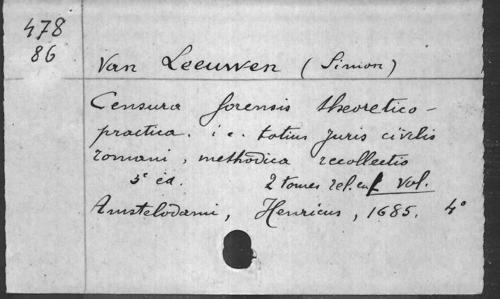 478
86
Van Leeuwen (Simon)
Censura forensis theoretico-
practica. i e. totius juris civilis
romani, methodica recollectio
5e éd. 2 tomes rel. en 1 vol.
Amstelodami, Henricus, 1685. 4°